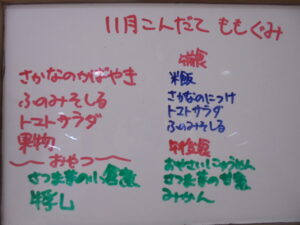 11月こんだて ももぐみ
さかなのかばやき
ふのみそしる
トマトサラダ
果物
〜おやつ〜
さつま芋の小倉煮
牛乳
米飯
さかなのにつけ
トマトサラダ
ふのみそしる
おやさいじゅうめん
さつま芋の甘煮
みかん